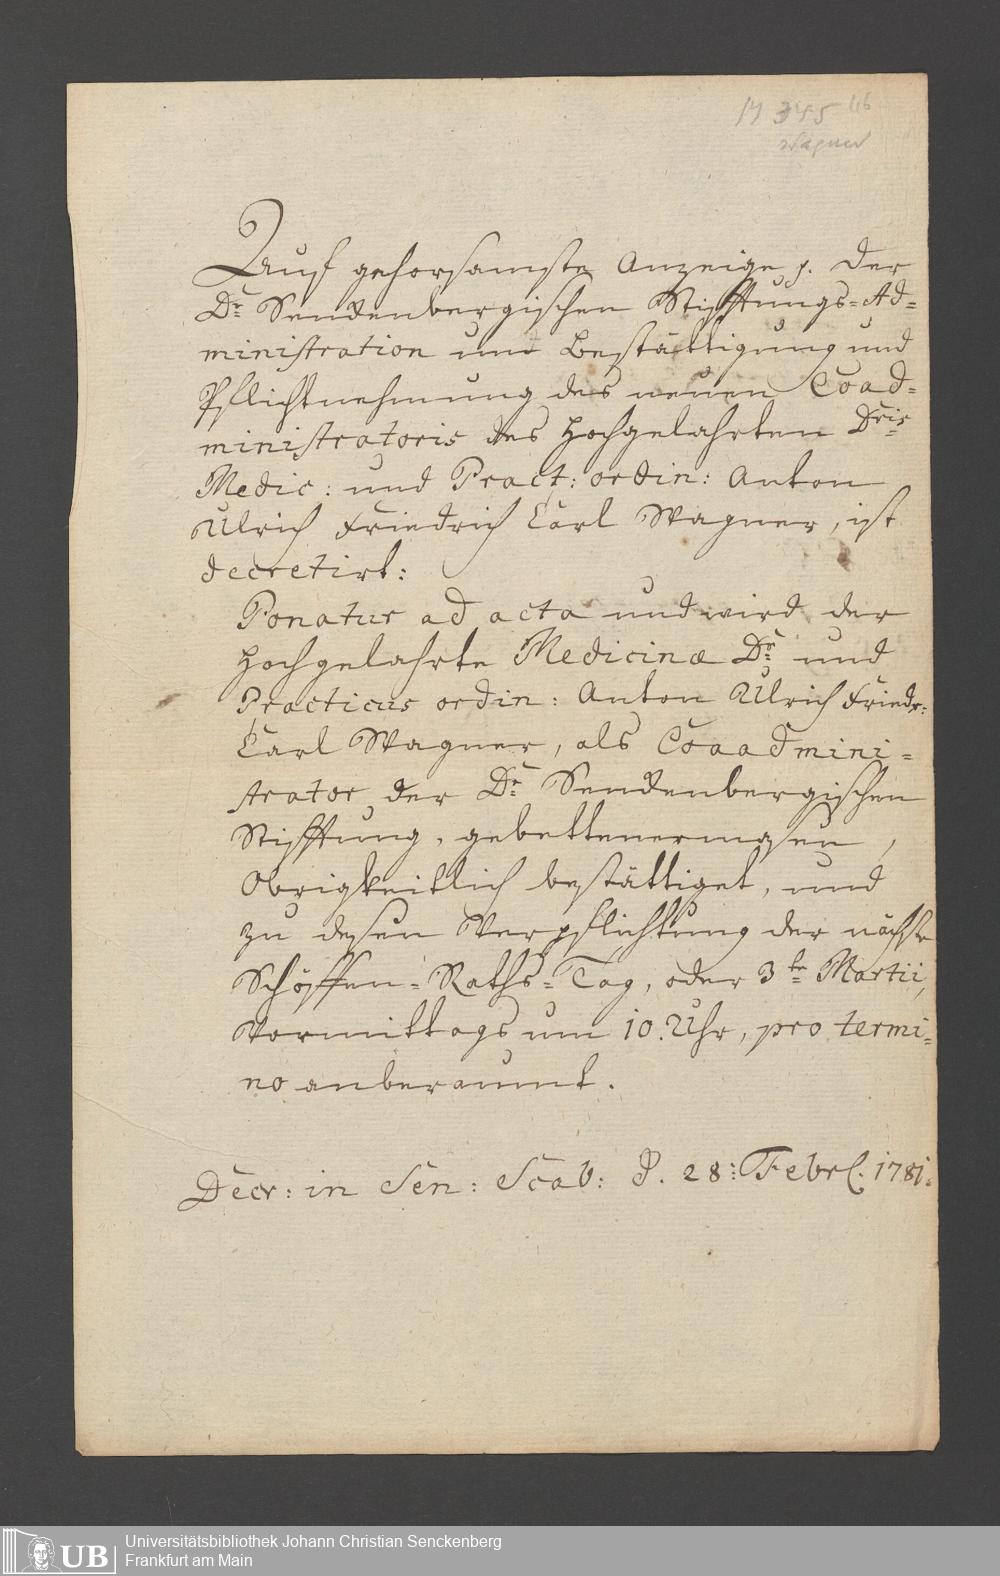 M 345 116
Wagner
Auf gehorsamste Anzeige p. der
Dr. Senckenbergischen Stifftungs-Ad-
ministration um Bestättigung und
Pflichtnehmung des neuen Coad-
ministratoris des Hochgelahrten Dris
Medic: und Pract: ordin: Anton
Ulrich Friedrich Carl Wagner, ist
decretirt:
Ponatur ad acta und wird der
Hochgelahrte Medicinæ Dr. und
Practicus ordin: Anton Ulrich Friedr:
Carl Wagner, als Coaadmini-
strator der Dr. Senckenbergischen
Stifftung, gebettenermasen,
Obrigkeitlich bestättiget, und
zu desen Verpflichtung der nächste
Schöffen-Raths-Tag, oder 3te Martii,
Vormittags um 10. Uhr, pro termi-
no anberaumt.
Decr: in Sen: Scab: d. 28: Febrl. 1781.
UB
Universitätsbibliothek Johann Christian Senckenberg
Frankfurt am Main